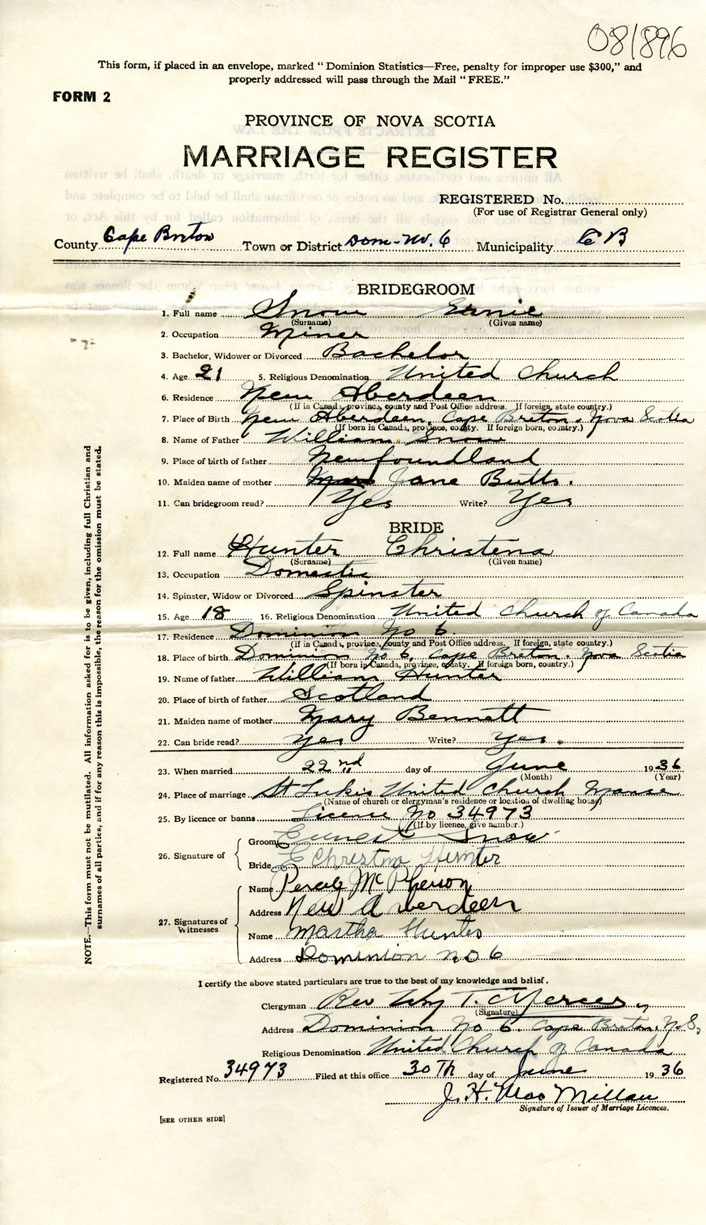 081896
This form, if placed in an envelope, marked “ Dominion Statistics—Free, penalty for improper use $300,” and
properly addressed will pass through the Mail “ FREE.”
FORM 2
PROVINCE OF NOVA SCOTIA
MARRIAGE REGISTER
REGISTERED No.
(For use of Registrar General only)
County Cape Breton Town or District Dom-No. 6 Municipality C B
BRIDEGROOM
1. Full name Snow Ernie
(Surname) (Given name)
2. Occupation Miner
3. Bachelor, Widower or Divorced Bachelor
4. Age 21 5. Religious Denomination United Church
6. Residence New Aberdeen
(If in Canada, province, county and Post Office address. If foreign, state country.)
7. Place of Birth New Aberdeen, Cape Breton, Nova Scotia
(If born in Canada, province, county. If foreign born, country.)
8. Name of Father William Snow
9. Place of birth of father Newfoundland
10. Maiden name of mother Jane Butts.
11. Can bridegroom read? Yes Write? Yes
BRIDE
12. Full name Hunter Christena
(Surname) (Given name)
13. Occupation Domestic
14. Spinster, Widow or Divorced Spinster
15. Age 18 16. Religious Denomination United Church of Canada
17. Residence Dominion No 6
(If in Canada, province, county and Post Office address. If foreign, state country.)
18. Place of birth Dominion No 6, Cape Breton, Nova Scotia
(If born in Canada, province, county. If foreign born, country.)
19. Name of father William Hunter
20. Place of birth of father Scotland
21. Maiden name of mother Mary Bennett
22. Can bride read? yes Write? Yes.
23. When married 22nd day of June 1936
(Month) (Year)
24. Place of marriage St Lukes United Church Manse
(Name of church or clergyman's residence or location of dwelling house)
25. By licence or banns Licence No 34973
(If by licence, give number.)
26. Signature of
Groom Ernest Snow
Bride Christina Hunter
27. Signatures of Witnesses
Name Percy McPherson
Address New Aberdeen
Name Martha Hunter
Address Dominion no 6
I certify the above stated particulars are true to the best of my knowledge and belief.
Clergyman Rev Wm T. Mercer,
(Signature)
Address Dominion No 6. Cape Breton, N.S,
Religious Denomination United Church of Canada
Registered No. 34973 Filed at this office 30Th day of June 1936
J. H. MacMillan
Signature of Issuer of Marriage Licences.
[SEE OTHER SIDE]
NOTE.—This form must not be mutilated. All information asked for is to be given, including full Christian and
surnames of all parties, and if for any reason this is impossible, the reason for the omission must be stated.